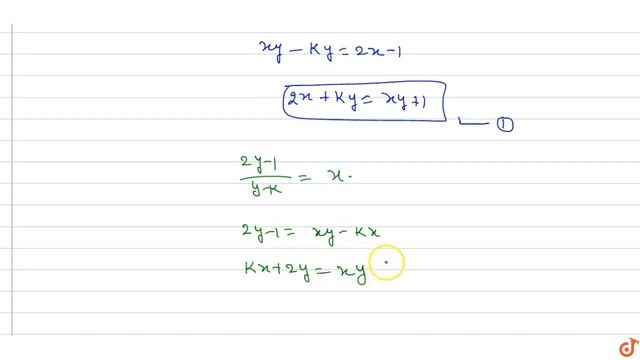 xy - Ky = 2x - 1
2x + Ky = xy + 1
①
2y-1 / y-K = x.
2y-1 = xy - Kx
Kx + 2y = xy